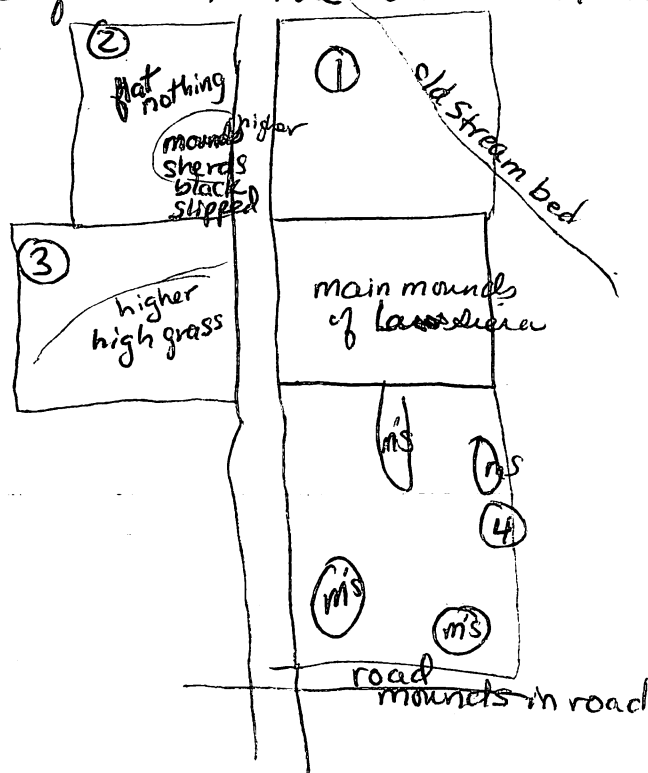 ②
flat
nothing
higher
mounds
sherds
black
slipped
①
old stream bed
③
higher
high grass
main mounds
of
m's
m's
④
m's
m's
road
mounds in road